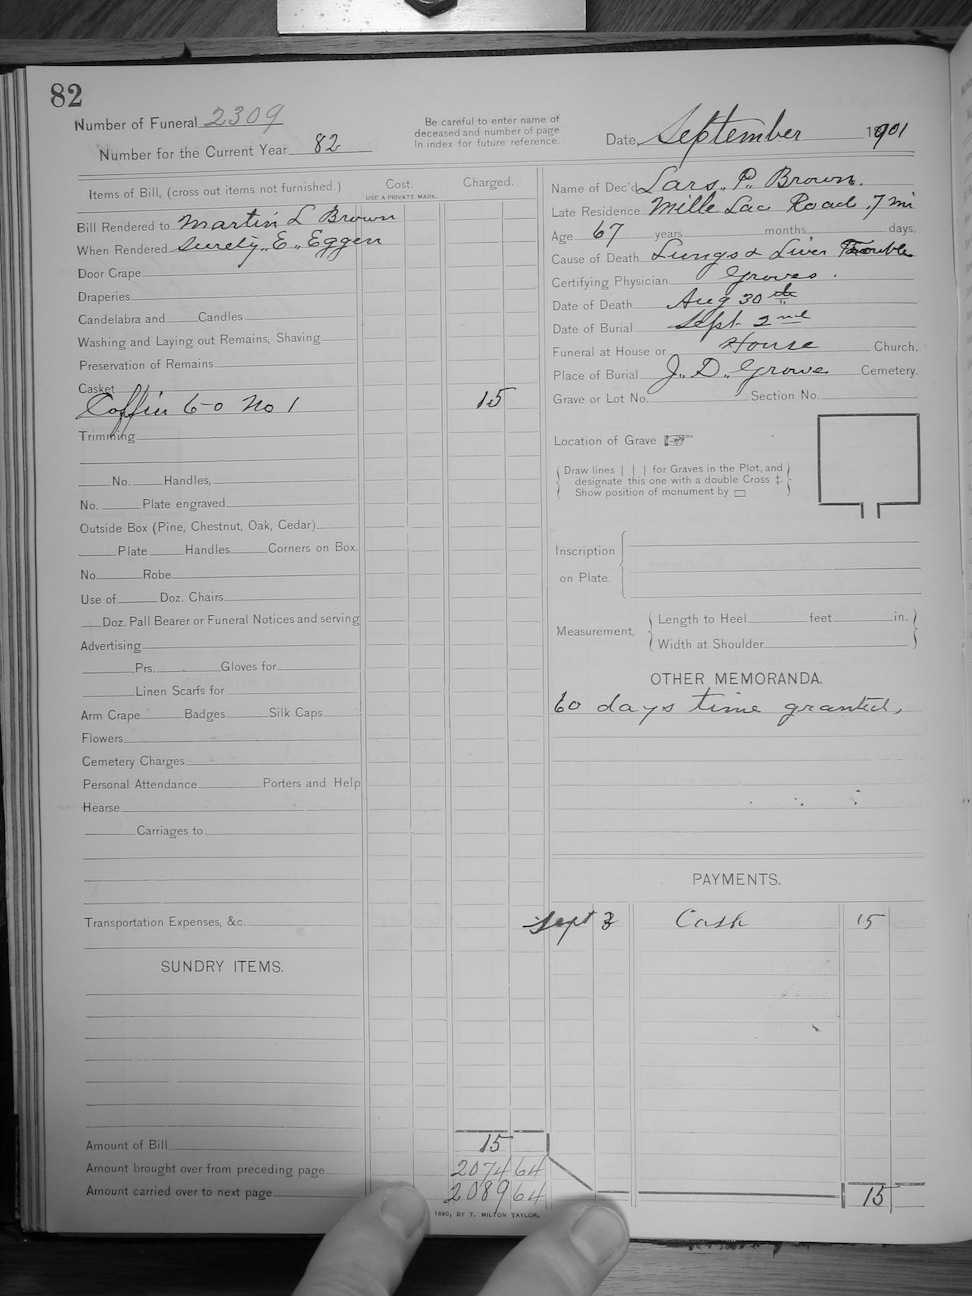 82
Number of Funeral 2309
Number for the Current Year 82
Be careful to enter name of
deceased and number of page
in index for future reference.
Date, September 1901
Items of Bill, (cross out items not furnished.)
Cost.
USE A PRIVATE MARK.
Charged.
Bill Rendered to Martin L Brown
When Rendered Surety, E. Eggen
Door Crape
Draperies
Candelabra and Candles
Washing and Laying out Remains, Shaving
Preservation of Remains
Casket
Coffin 6-0 No 1 15
Trimming
No. Handles,
No. Plate engraved
Outside Box (Pine, Chestnut, Oak, Cedar)
Plate Handles Corners on Box.
No. Robe
Use of Doz. Chairs
Doz. Pall Bearer or Funeral Notices and serving
Advertising
Prs. Gloves for
Linen Scarfs for
Arm Crape Badges Silk Caps
Flowers
Cemetery Charges
Personal Attendance Porters and Help
Hearse
Carriages to
Transportation Expenses, &c.
SUNDRY ITEMS.
Amount of Bill 15
Amount brought over from preceding page 2074 64
Amount carried over to next page 2089 64
1890, BY T. MILTON TAYLOR.
Name of Dec'd Lars. P. Brown.
Late Residence Mille Lac Road, 7 mi
Age 67 years months days.
Cause of Death Lungs & Liver Trouble
Certifying Physician Groves.
Date of Death Aug 30th
Date of Burial Sept 2nd
Funeral at House or House Church.
Place of Burial J. D. Grove Cemetery.
Grave or Lot No. Section No.
Location of Grave
Draw lines | | | for Graves in the Plot, and
designate this one with a double Cross ‡.
Show position of monument by ▭
Inscription
on Plate.
Measurement,
Length to Heel feet in.
Width at Shoulder
OTHER MEMORANDA.
60 days time granted,
PAYMENTS.
Sept 3 Cash 15
15